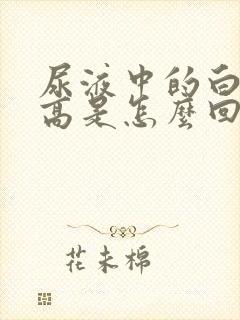 尿液中的白
高是怎麼回
花未棉